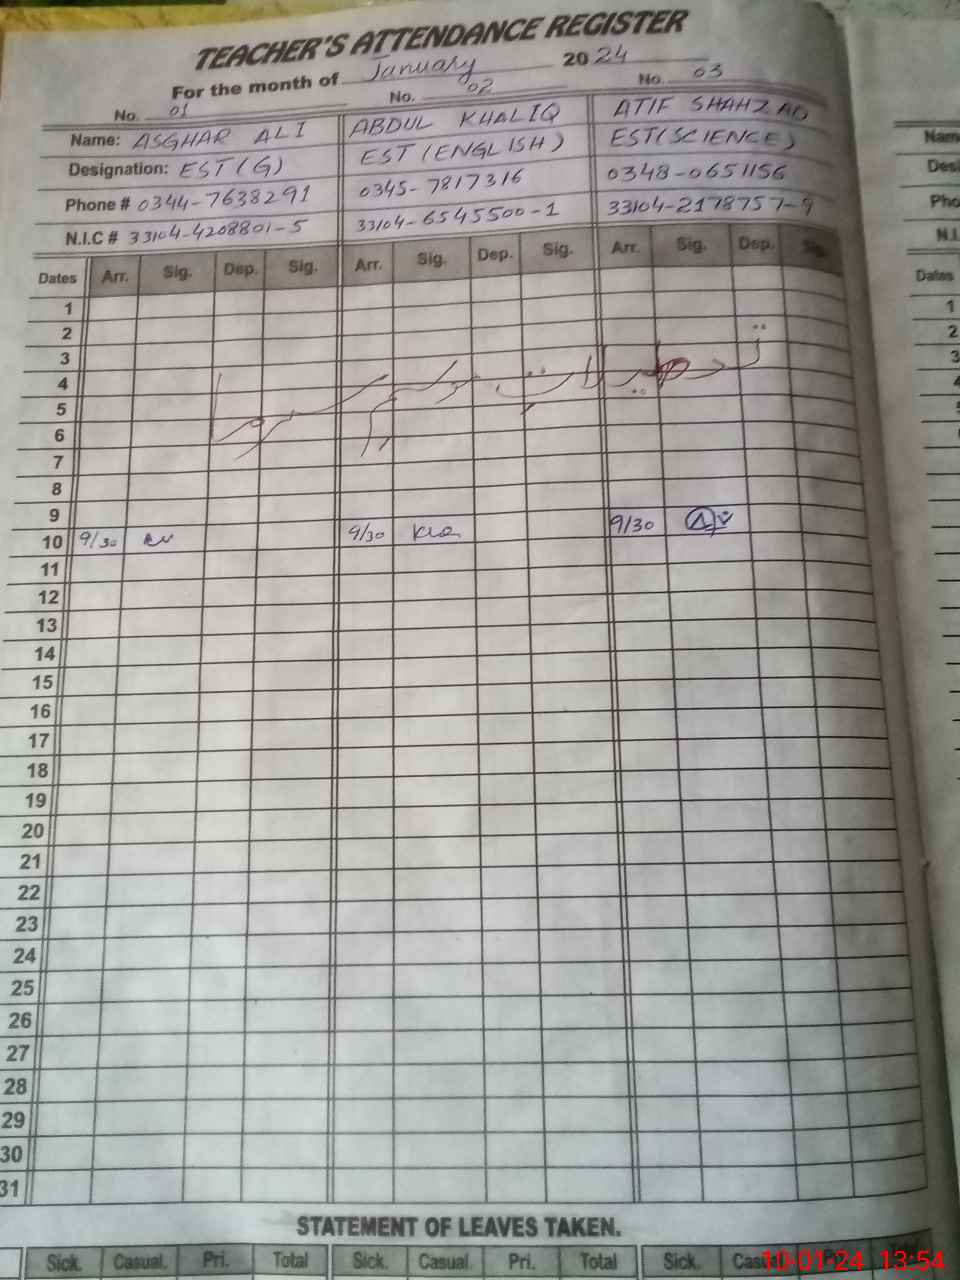 TEACHER'S ATTENDANCE REGISTER
For the month of January 2024
No. 01 No. 02 No. 03
Name: ASGHAR ALI ABDUL KHALIQ ATIF SHAHZAD
Designation: EST(G) EST(ENGLISH) EST(SCIENCE)
Phone # 0344-7638291 0345-7817316 0348-0651156
N.I.C # 33104-4208801-5 33104-6545500-1 33104-2178757-9
Dates Arr. Sig. Dep. Sig. Arr. Sig. Dep. Sig. Arr. Sig. Dep. Sig.
1
2
3
تعطیلات موسم سرما
4
5
6
7
8
9
10 9/30 9/30 9/30
11
12
13
14
15
16
17
18
19
20
21
22
23
24
25
26
27
28
29
30
31
STATEMENT OF LEAVES TAKEN.
Sick. Casual. Pri. Total Sick. Casual. Pri. Total Sick.
10-01-24 13:54
Name
Desi
Pho
N.I.
Dates
1
2
3
4
5